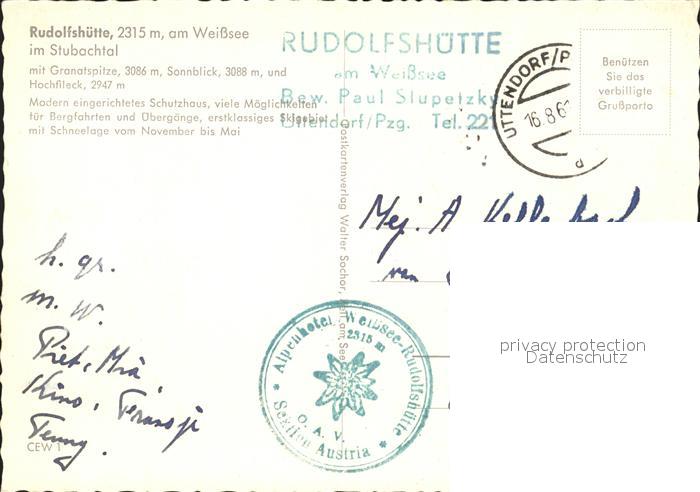 Rudolfshütte, 2315 m, am Weißsee
im Stubachtal
mit Granatspitze, 3086 m, Sonnblick, 3088 m, und
Hochfilleck, 2947 m
Modern eingerichtetes Schutzhaus, viele Möglichkeiten
für Bergfahrten und Übergänge, erstklassiges Skigebiet
mit Schneelage vom November bis Mai
RUDOLFSHÜTTE
am Weißsee
Bew. Paul Slupetzky
Uttendorf/Pzg. Tel. 221
UTTENDORF/P
16.8.6
Benützen
Sie das
verbilligte
Grußporto
Postkartenverlag Walter Sochor, Zell am See
Mej. A
van
h. gr.
m. w.
Piet, Mia
Kino, Fransje
Tenny.
Alpenhotel Weißsee-Rudolfshütte
2315 m
O. A. V.
Sektion Austria
CEW 1
privacy protection
Datenschutz